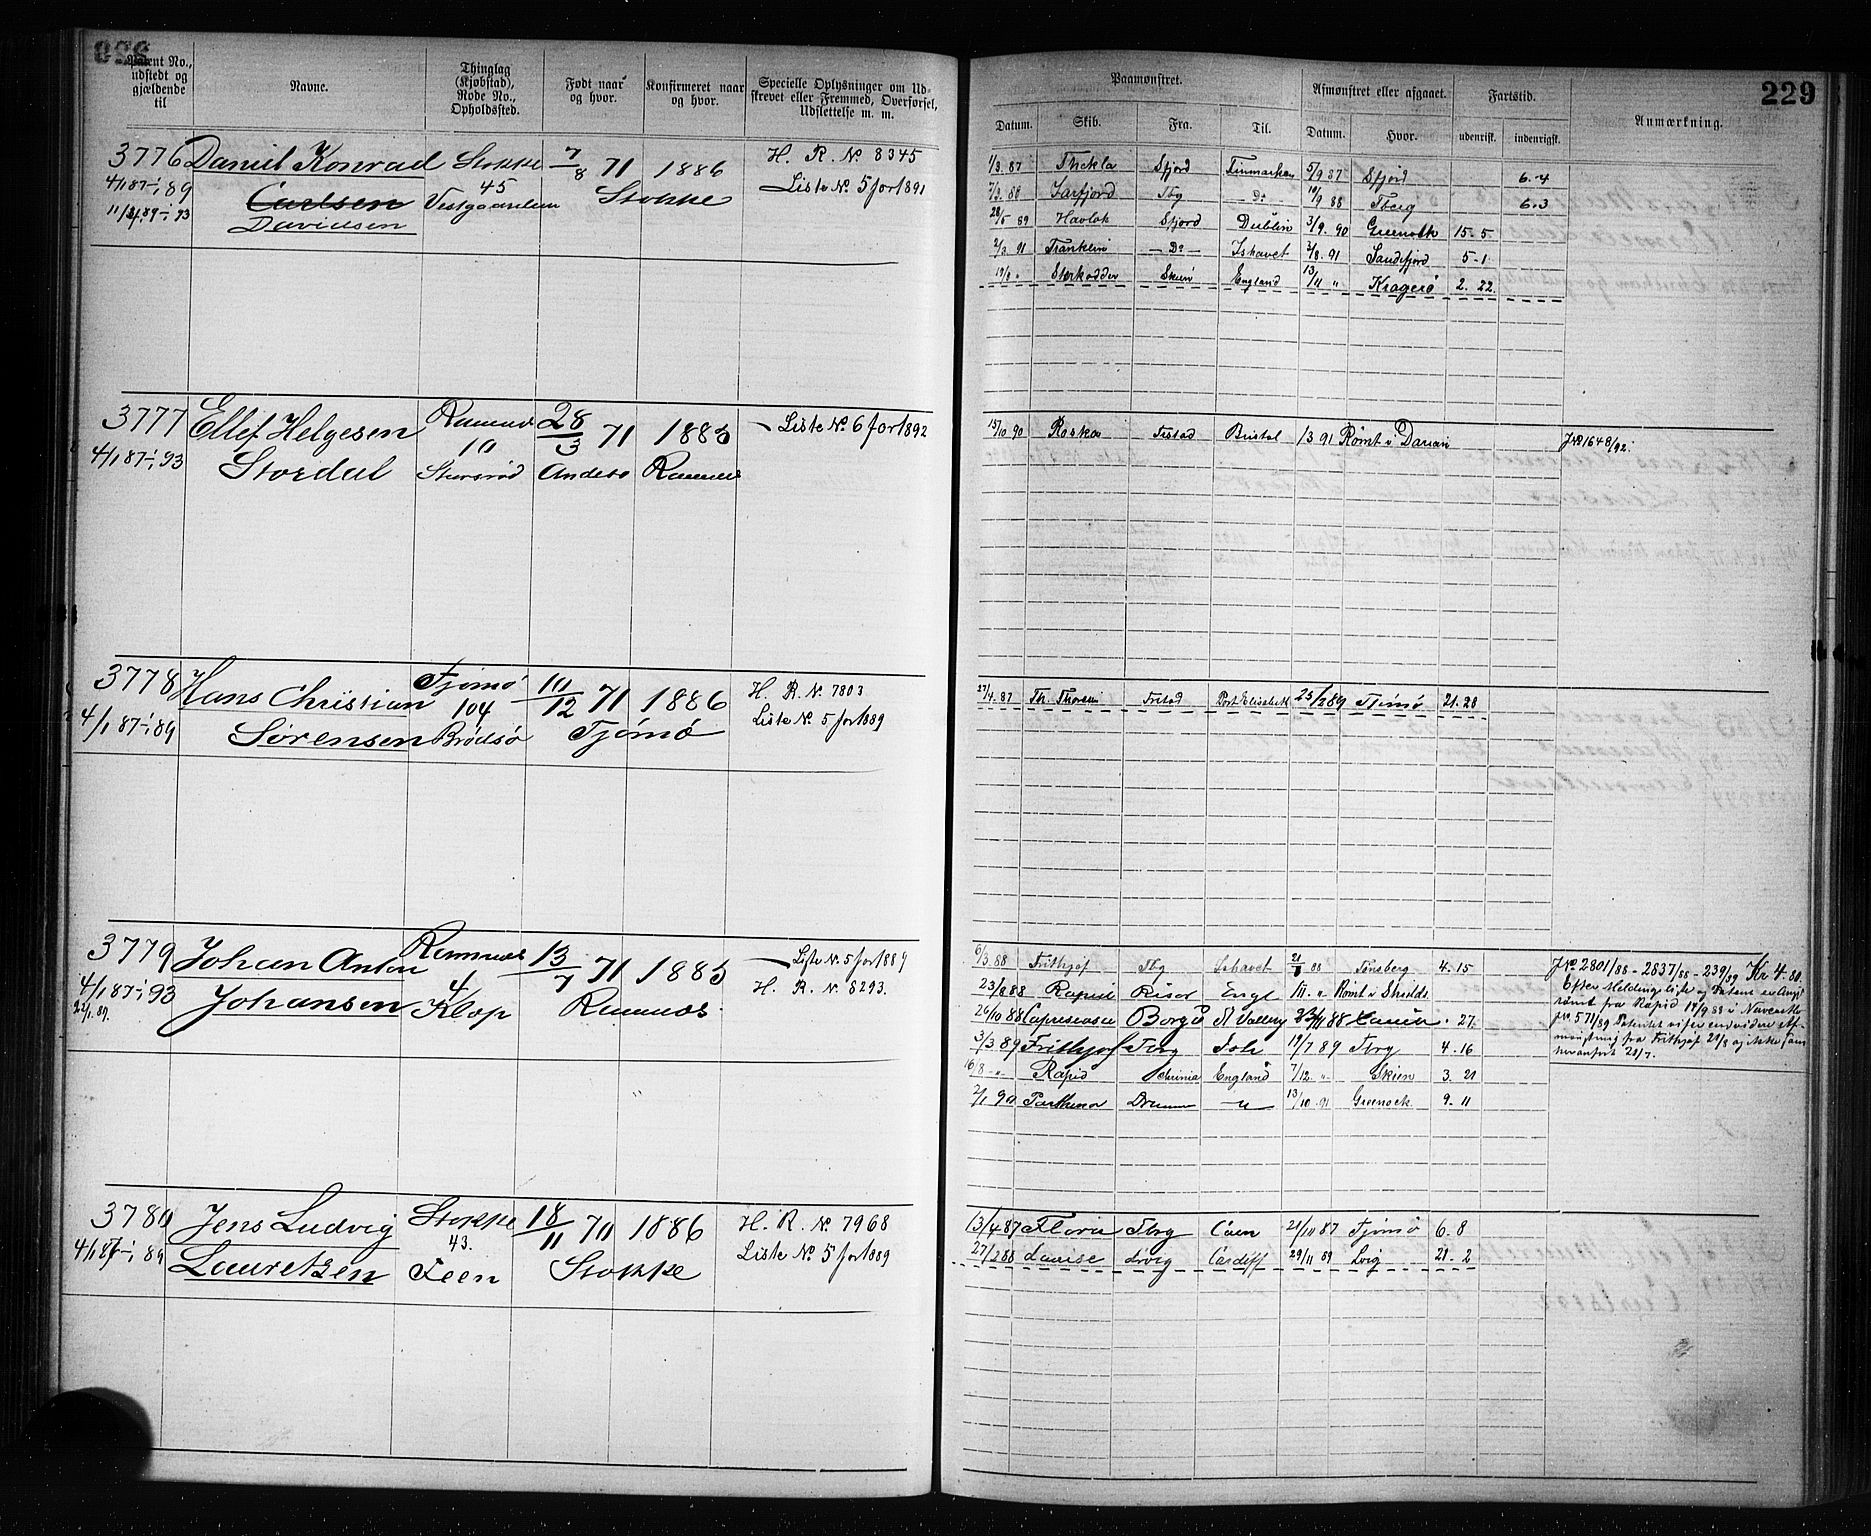 229
Patent No., udstedt og gjældende til
Navne.
Thinglag (Kjøbstad), Rode No., Opholdssted.
Født naar og hvor.
Konfirmeret naar og hvor.
Specielle Oplysninger om Udskrevet eller Fremmed, Overførsel, Udslettelse m. m.
Paamønstret.
Afmønstret eller afgaaet.
Fartstid.
Anmærkning.
Datum. Skib. Fra. Til. Datum. Hvor. udenrigs. indenrigs.
3776 Daniel Konrad Stokke 7/8 71 1886 H. R. No 8345
4/1 87-1/1 89 Carlsen 45 Stokke Liste No. 5 for 1891
11/2 89-1/1 93 Davidsen
1/3 87 Thekla Sfjord Finmarken 5/9 87 Sfjord 6.4
7/3 88 Jarfjord Tbg Do 19/9 88 Tberg 6.3
28/5 89 Havlok Sfjord Dublin 3/9 90 Greenock 15.5
2/3 91 Franklin Do Ishavet 2/8 91 Sandefjord 5.1
19/8 " Skien England 13/11 " Kragerø 2. 22
3777 Ellef Helgesen Ramnes 28/3 71 1885 Liste No. 6 for 1892
4/1 87-1/1 93 Stordal 10 Andebo Ramnes
15/10 90 Roska Frstad Bristol 1 3 91 Rømt i Darien J No 1648/92.
3778 Hans Christian Tjømø 10/12 71 1886 H. R. No. 7803
4/1 87-1/1 89 Sørensen 104 Brødsø Tjømø Liste No. 5 for 1889
27/4 87 Th. Thoresen Frstad Port Elisabeth 25/1 89 Tjømø 21.28
3779 Johan Anton Ramnes 13/7 71 1885 Liste No. 5 for 1889
4/1 87-1/1 93 Johansen 4 Klop Ramnes H. R. No. 8293.
6/3 88 Frithjof Tbg Ishavet 21/8 88 Tønsberg 4.15
23/8 88 Rapid Risør Engl Rømt i Shields
26/10 88 Borgå 88 27
3/3 89 Frithjof Tbrg Ish 19/7 89 Tbrg 4.16
16/8 " Rapid Xchrinia England 7/12 " Skien 3. 21
2/1 90 Drammen 13/10 91 Greenock 9.11
J No 2801/88 - 2837/88 - 239/89 Kr 4.80
Efter Meldingsliste og Patent er Angj
rømt fra Rapid 18/9 88 i Newcastle
J No. 571/89 Patentet viser endvidere Af-
mønstring fra Frithjof 21/8 og ikke som
heranført 21/7.
3780 Jens Ludvig Stokke 18/11 70 1886 H. R. No 7968
4/1 87-1/1 89 Lauretzen 43. Feen Stokke Liste No 5 for 1889
13/4 87 Flora Tbrg Caen 21/11 87 Tjømø 6.8
27/2 88 Louise Lvig Cardiff 29/11 89 Lvig 21.2